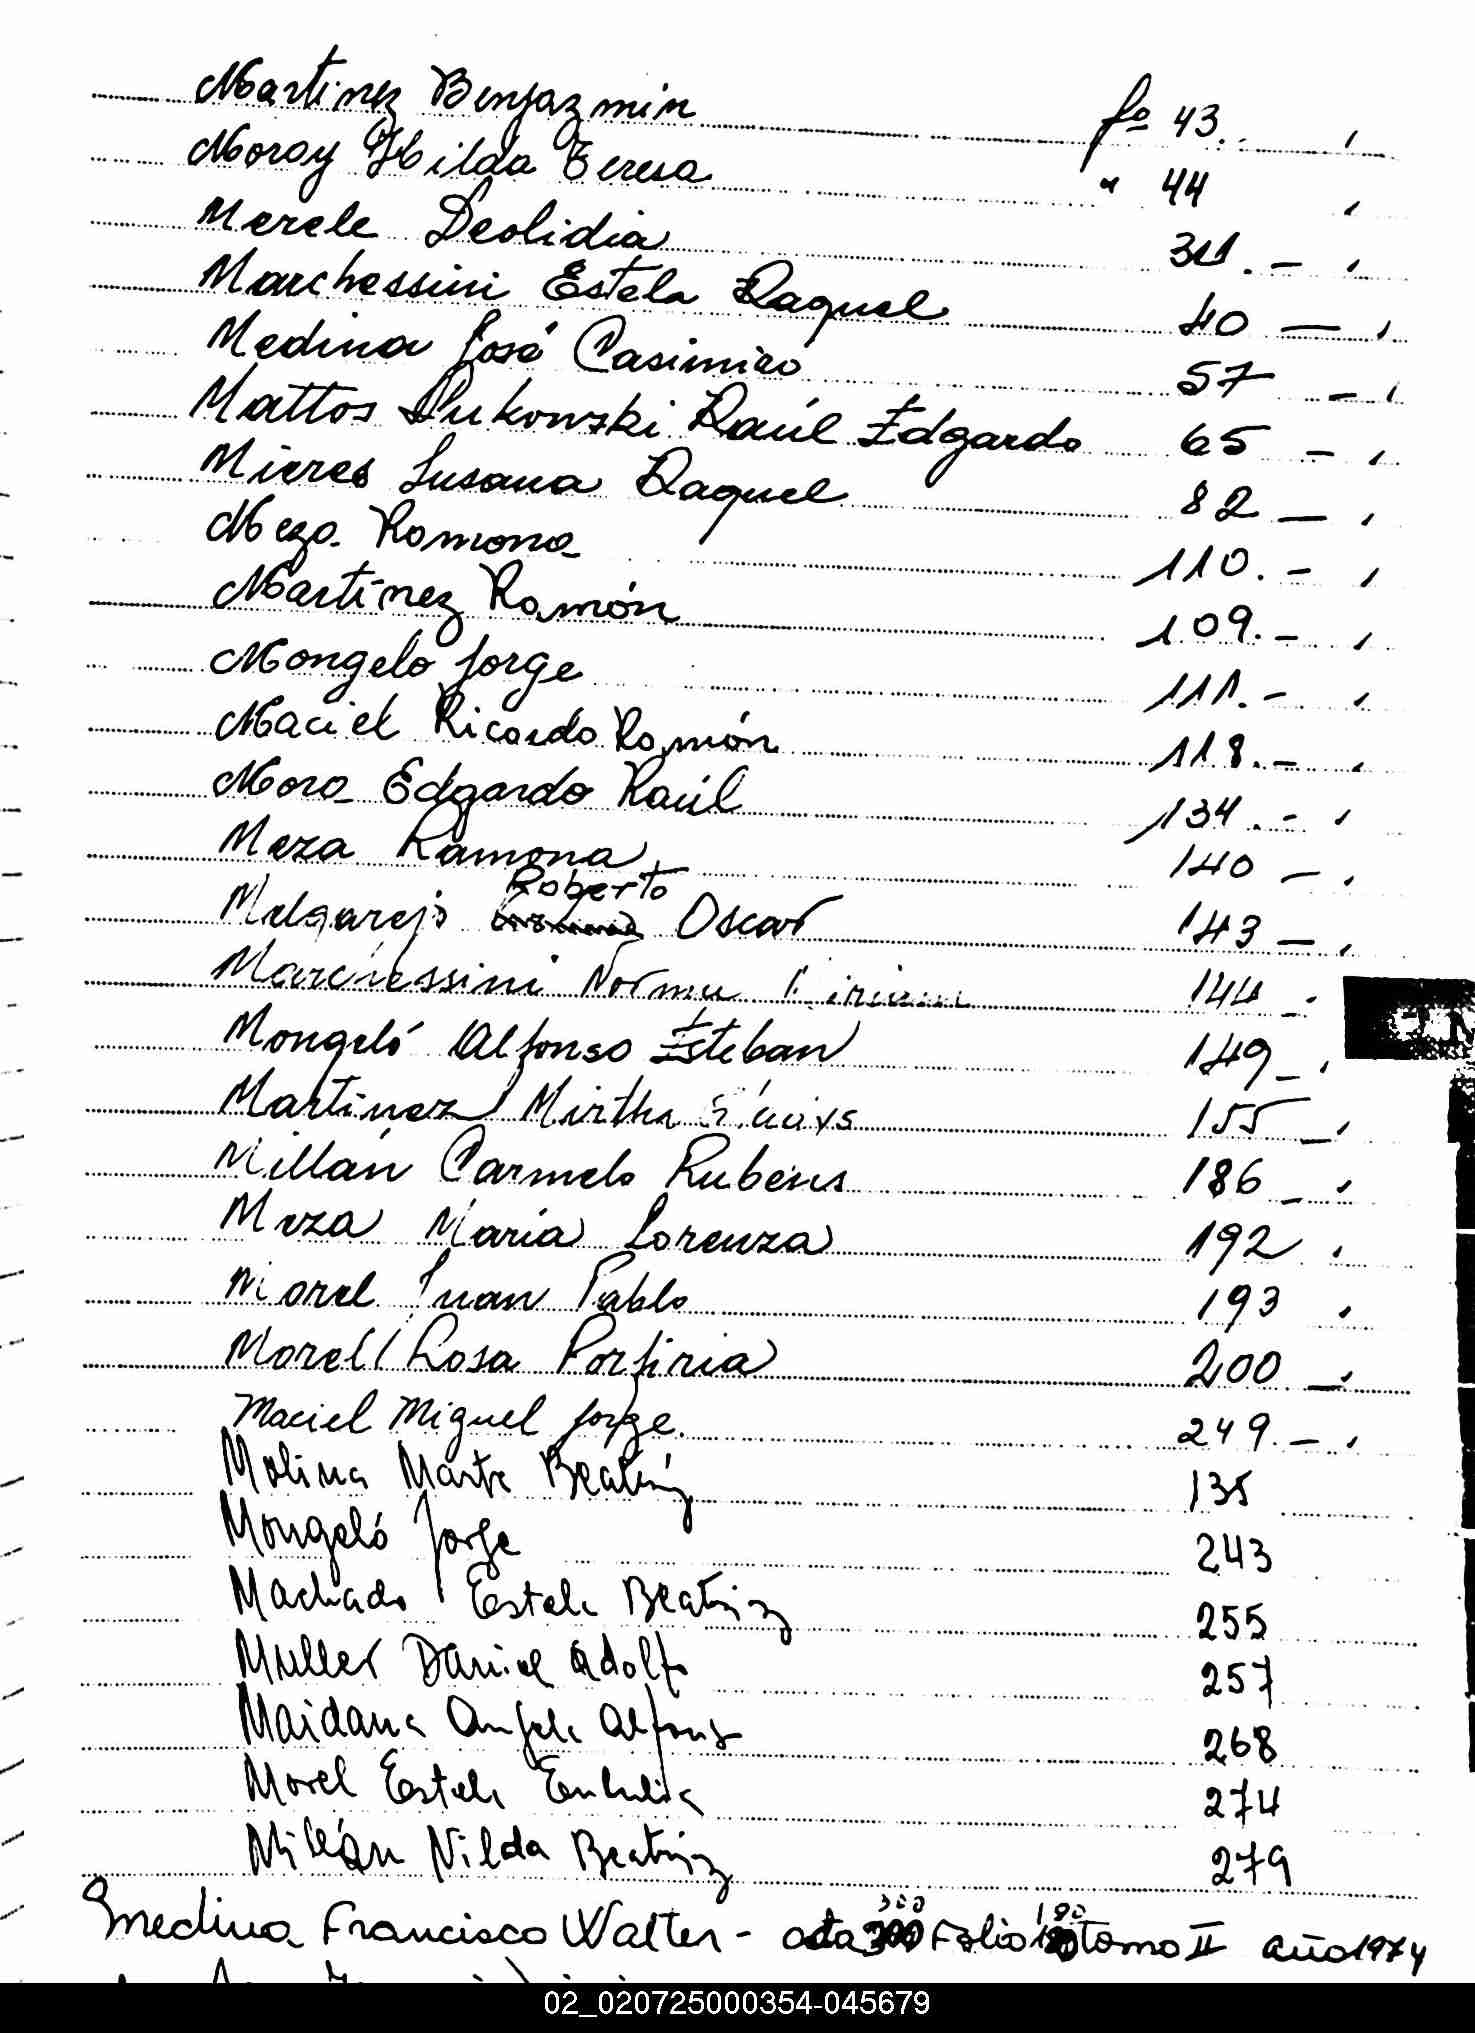 Martinez Benjazmin fº 43.
Moray Hilda Teresa " 44
Merele Deolidia 311. -
Marchessini Estela Raquel 40 -
Medina José Casimiro 57 -
Mattos Raúl Edgardo 65 -
Mieres Susana Raquel 82 -
Meza Ramona 110. -
Martínez Ramón 109. -
Mongelo Jorge 111. -
Maciel Ricardo Ramón 118. -
Mora Edgardo Raúl 134. -
Meza Ramona 140 -
Roberto
Melgarejo Oscar 143 -
Marchessini Norma 144 -
Mongeló Alfonso Esteban 149 -
Martinez Mirtha 155 -
Millán Carmelo Rubens 186 -
Meza María Lorenza 192
Morel Juan Pablo 193
Morel Rosa Porfiria 200 -
Maciel Miguel Jorge. 249. -
Molina Marta Beatriz 135
Mongeló Jorge 243
Machado Estela Beatriz 255
Muller Daniel Adolfo 257
Maidana Alfonso 268
Morel Estela 274
Millán Nilda Beatriz 279
300 180
Medina Francisco Walter - acta 300 Folio 180 tomo II año 1974
02_020725000354-045679